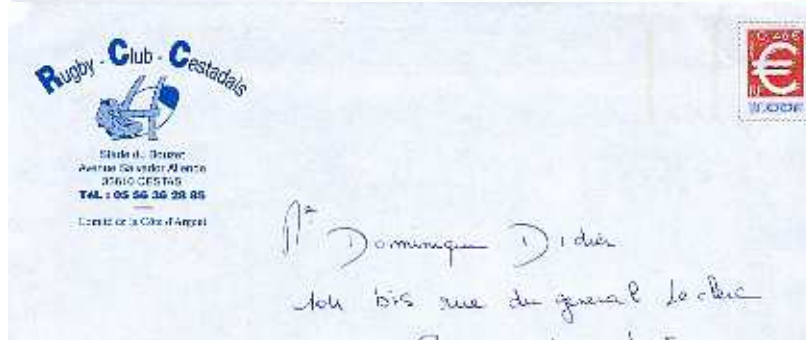 Rugby - Club - Cestadais
Stade du Bouzet
Avenue Salvador Allende
33610 CESTAS
Tél. : 05 56 36 28 85
Comité de la Côte d'Argent
0,46€
€
3,00F
Mr Dominique Didier
bis rue du general Leclerc